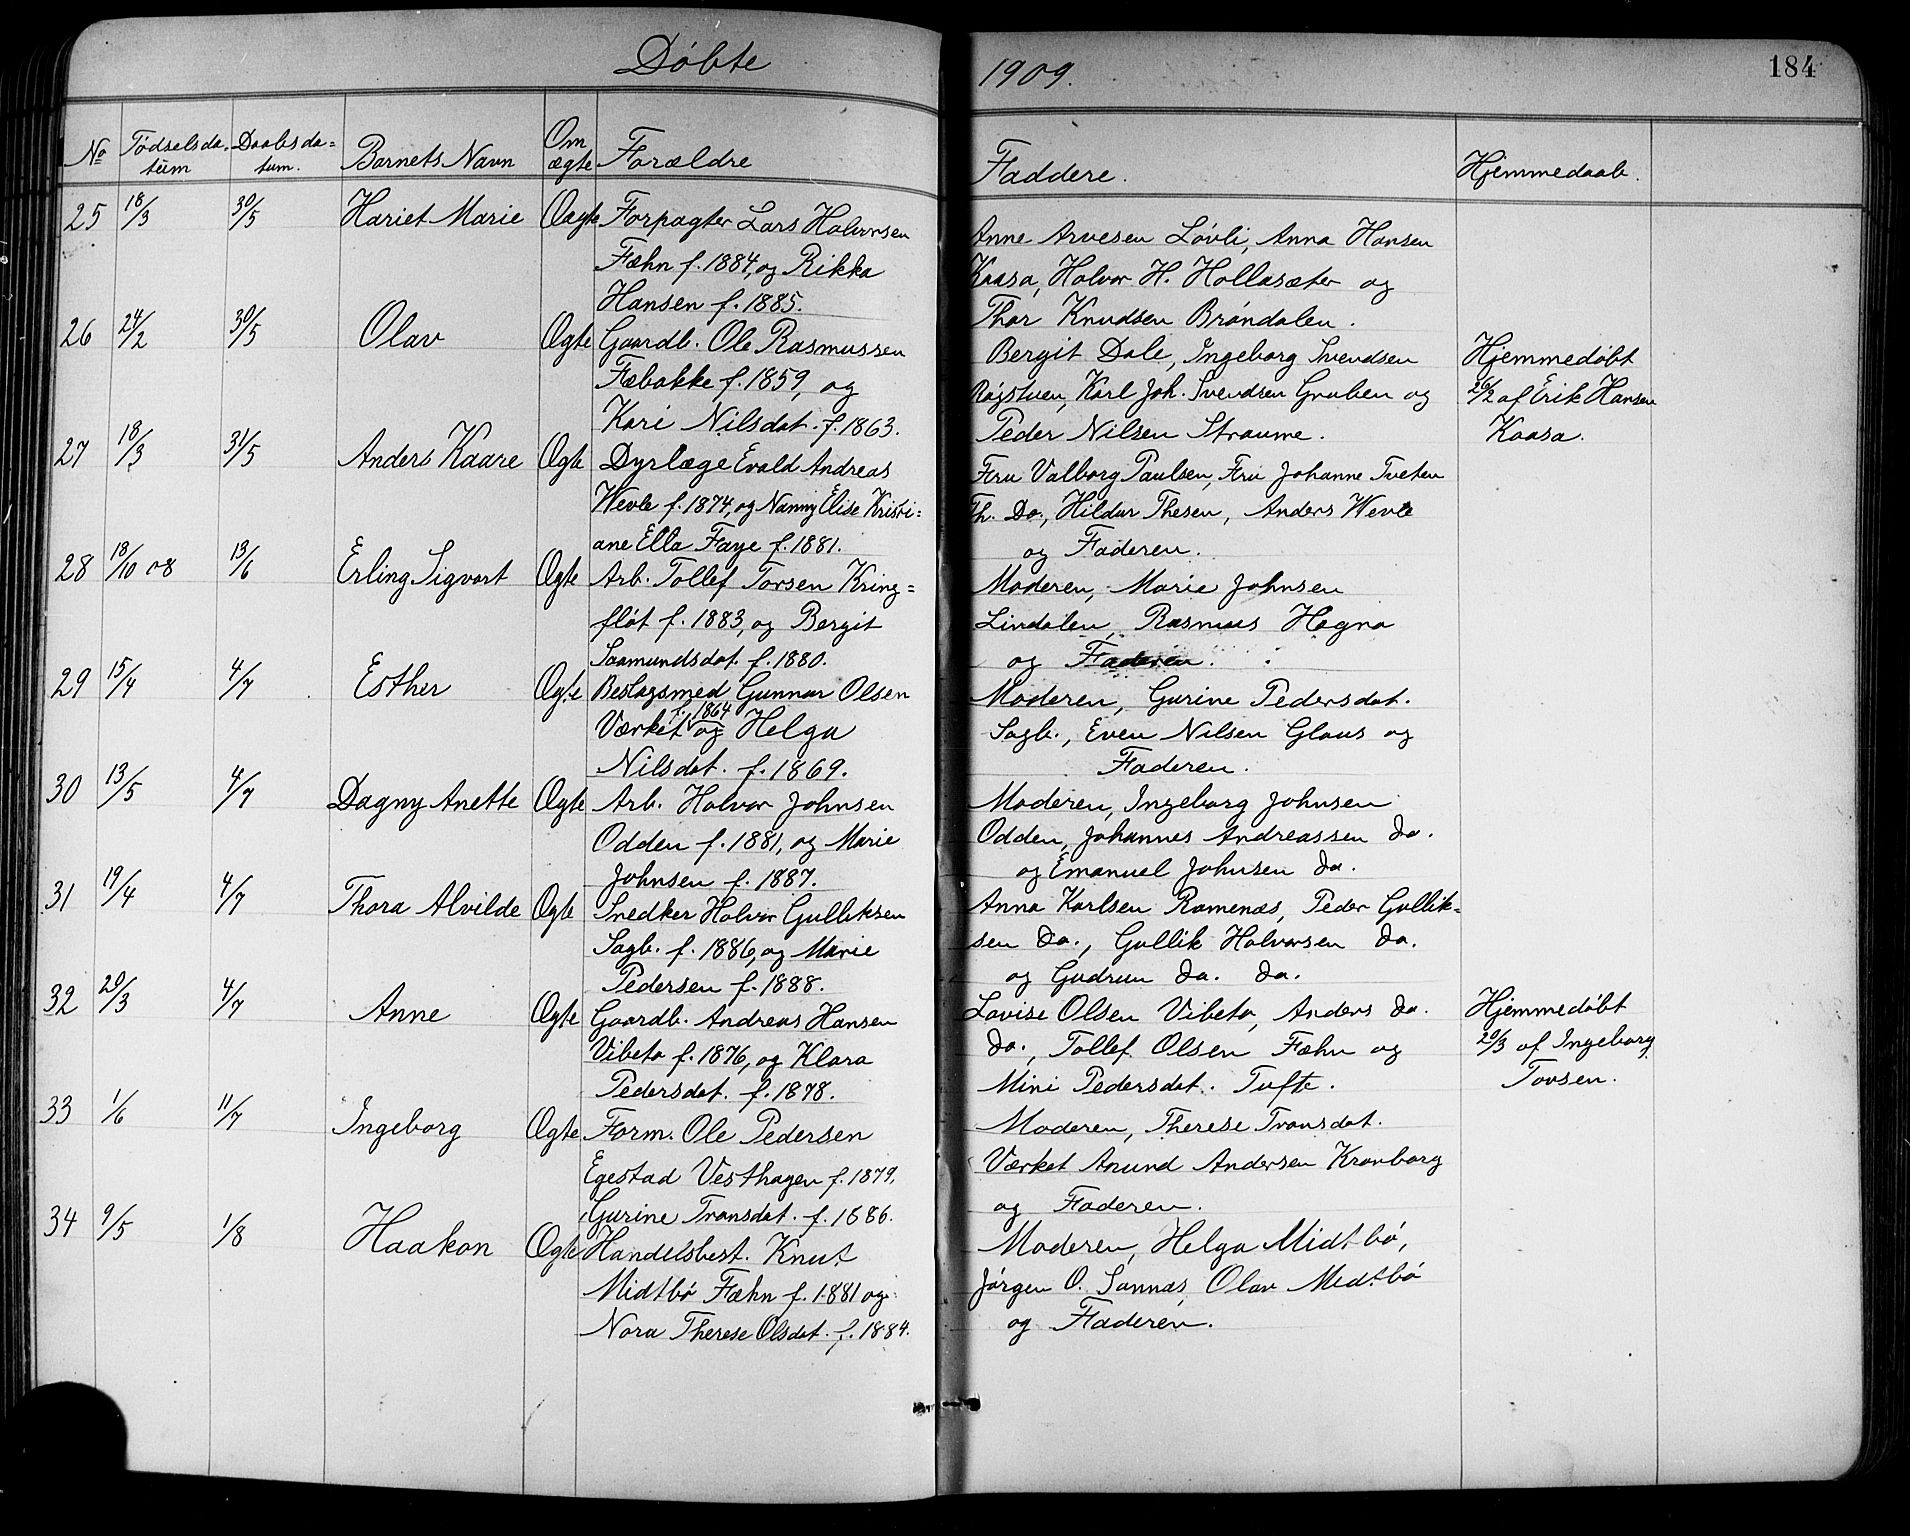 Døbte 1909. 184
No Fødselsda- Daabsda= Barnets Navn Om Forældre Faddere. Hjemmedaab.
tum tum. ægte
25 18/3 30/5 Hariet Marie Uægte Forpagter Lars Halvorsen
Fæhn f. 1884, og Rikka
Hansen f. 1885.
Anne Arvesen Løvli, Anna Hansen
Kaasa, Halvor H. Hollasæter og
Thor Knudsen Brøndalen.
26 24/2 30/5 Olav Ægte Gaardb. Ole Rasmussen
Fæbakke f. 1859, og
Kari Nilsdat. f. 1863.
Bergit Dale, Ingeborg Svendsen
Røgstuen, Karl Joh. Svendsen Gruben og
Peder Nilsen Straume.
Hjemmedøbt
26/2 af Erik Hansen
Kaasa.
27 18/3 31/5 Anders Kaare Ægte Dyrlæge Evald Andreas
Wevle f. 1874, og Nanny Elise Kristi=
ane Ella Faye f. 1881.
Fru Valborg Paulsen, Fru Johanne Tveten
Th. Do., Hildur Thesen, Anders Wevle
og Faderen.
28 18/10 08 13/6 Erling Sigvart Ægte Arb. Tollef Torsen Kring=
fløt f. 1883, og Bergit
Saamundsdat. f. 1880.
Moderen, Marie Johnsen
Lindalen, Rasmus Hagna
og Faderen.
29 15/4 4/7 Esther Ægte Beslagsmed Gunnar Olsen
Værket f. 1864 og Helga
Nilsdat. f. 1869.
Moderen, Gurine Pedersdat.
Sagb., Even Nilsen Glaus og
Faderen.
30 13/5 4/7 Dagny Anette Ægte Arb. Halvor Johnsen
Odden f. 1881, og Marie
Johnsen f. 1887.
Moderen, Ingeborg Johnsen
Odden, Johannes Andreassen do.
og Emanuel Johnsen do.
31 19/4 4/7 Thora Alvilde Ægte Snedker Halvor Gulliksen
Sagb. f. 1886, og Marie
Pedersen f. 1888.
Anna Karlsen Ramenæs, Peder Gullik=
sen do., Gullik Halvorsen do.
og Gudrun do. do.
32 20/3 4/7 Anne Ægte Gaardb. Andreas Hansen
Vibeto f. 1876, og Klara
Pedersdat. f. 1878.
Lovise Olsen Vibeto, Anders do.
do., Tollef Olsen Fæhn og
Mini Pedersdat. Tufte.
Hjemmedøbt
20/3 af Ingeborg
Tovsen.
33 1/6 11/7 Ingeborg Ægte Form. Ole Pedersen
Egestad Vesthagen f. 1879,
Gurine Transdat. f. 1886.
Moderen, Therese Transdat.
Værket Anund Andersen Kronborg
og Faderen.
34 9/5 1/8 Haakon Ægte Handelsbest. Knut
Midtbø Fæhn f. 1881 og
Nora Therese Olsdat. f. 1884.
Moderen, Helga Midtbø,
Jørgen O. Sannæs, Olav Midtbø
og Faderen.